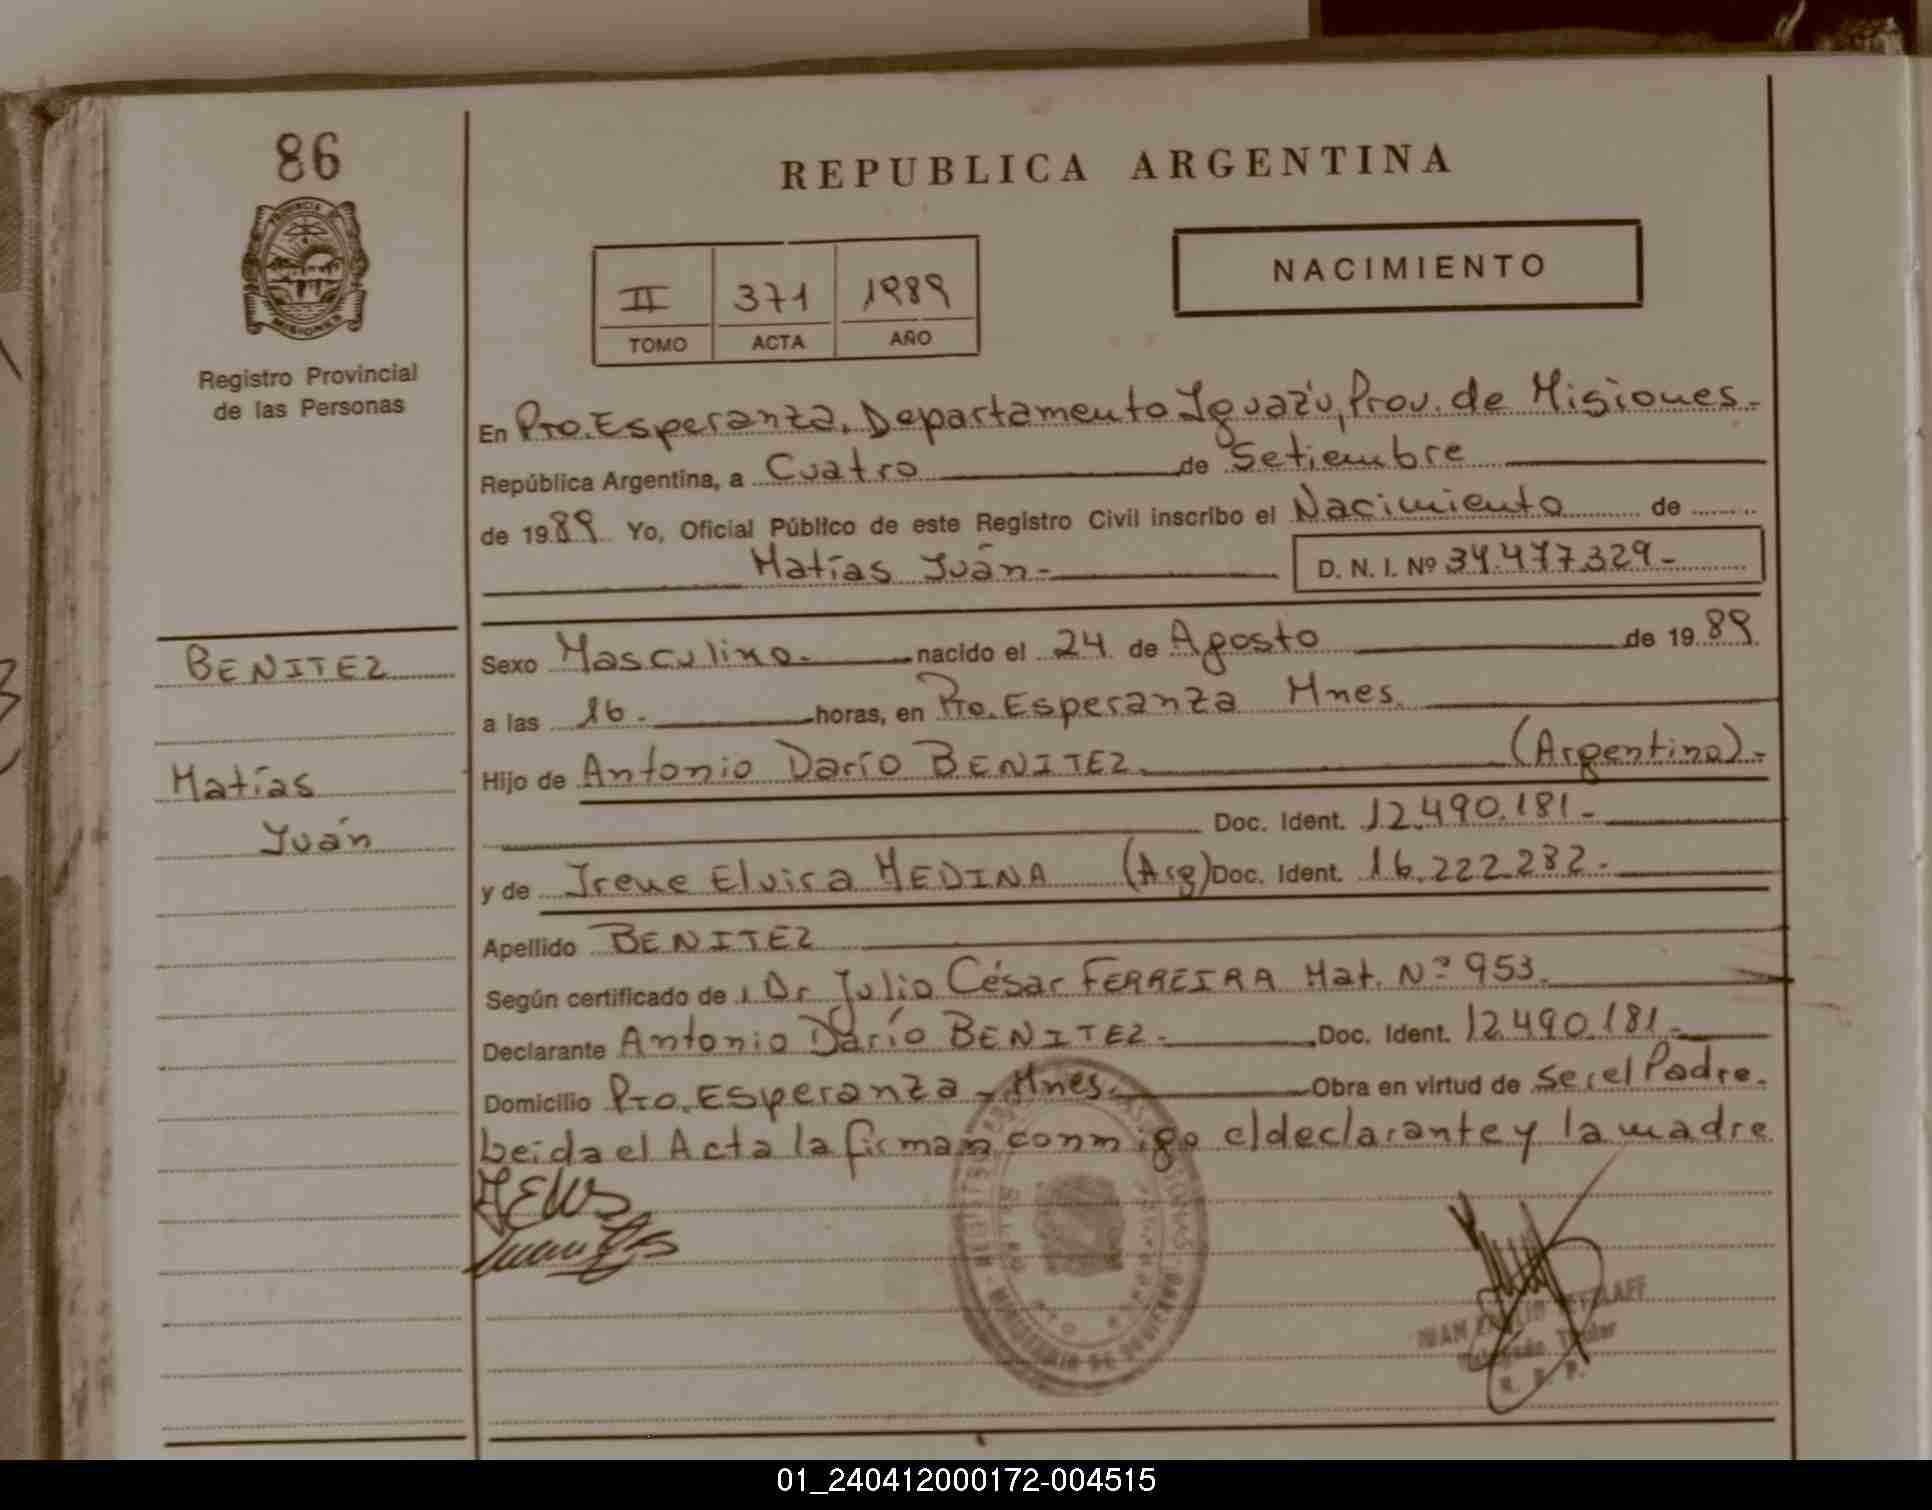 86
REPUBLICA ARGENTINA
PROVINCIA DE
MISIONES
Registro Provincial
de las Personas
II 371 1989
TOMO ACTA AÑO
NACIMIENTO
En Pto. Esperanza, Departamento Iguazú, Prov. de Misiones-
República Argentina, a Cuatro de Setiembre
de 1989 Yo, Oficial Público de este Registro Civil inscribo el Nacimiento de
Matías Juán- D. N. I. Nº 34.477.329-
BENITEZ
Matías
Juán
Sexo Masculino- nacido el 24 de Agosto de 1989
a las 16- horas, en Pto. Esperanza Mnes.
Hijo de Antonio Darío BENITEZ (Argentino)-
Doc. Ident. 12.490.181-
y de Irene Elvira MEDINA (Arg) Doc. Ident. 16.222.232-
Apellido BENITEZ
Según certificado de Dr Julio César FERREIRA Mat. Nº 953
Declarante Antonio Darío BENITEZ- Doc. Ident. 12.490.181-
Domicilio Pto. Esperanza - Mnes. Obra en virtud de ser el Padre.
Leida el Acta la firman conmigo el declarante y la madre
JUAN
Delegado Titular
R. P. P.
01_240412000172-004515